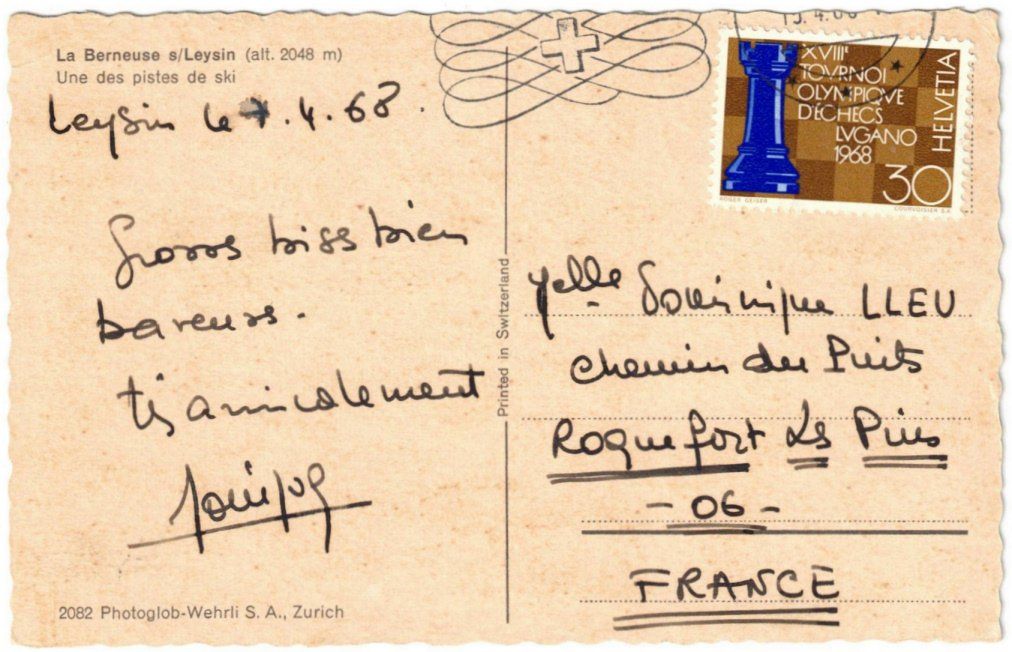 La Berneuse s/Leysin (alt. 2048 m)
Une des pistes de ski
Leysin le 7.4.68.
Gross biss bien
baveurs.
ts amicalement
XVIIIe
TOVRNOI
OLYMPIQVE
D'ÉCHECS
LVGANO
1968
HELVETIA
30
ROGER GEISER
COURVOISIER S.A.
Printed in Switzerland
Melle Dominique LLEU
Chemin du Puits
Roquefort Les Pins
- 06 -
FRANCE
2082 Photoglob-Wehrli S. A., Zurich